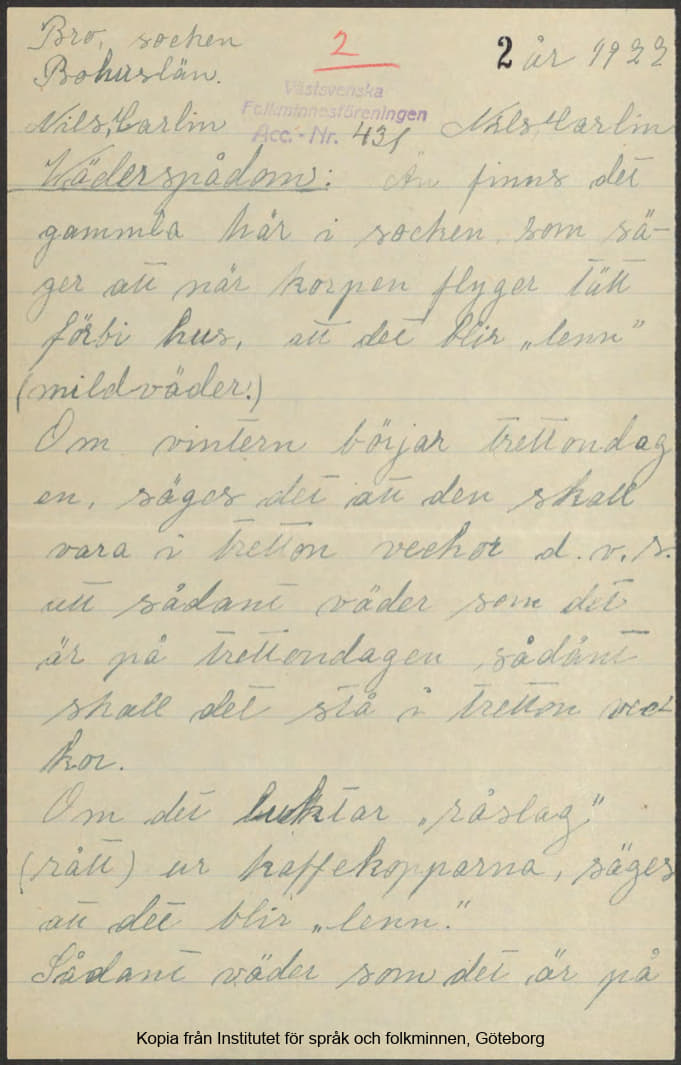 Bro, socken
Bohuslän.
2
2 år 1922
Västsvenska
Folkminnesföreningen
Acc.-Nr. 431
Nils, Carlin
Nils, Carlin
Väderspådom: Än finns det
gammla här i socken, som sä-
ger att när korpen flyger tätt
förbi hus, att det blir „lenn”
(mildväder!)
Om vintern börjar trettondag
en, säges det att den skall
vara i tretton veckor d.v.s.
att sådant väder som det
är på trettondagen, sådånt
skall det stå i tretton vec-
kor.
Om det luktar „råslag”
(rått) ur kaffekopparna, säges
att det blir „lenn.”
Sådant väder som det är på
Kopia från Institutet för språk och folkminnen, Göteborg